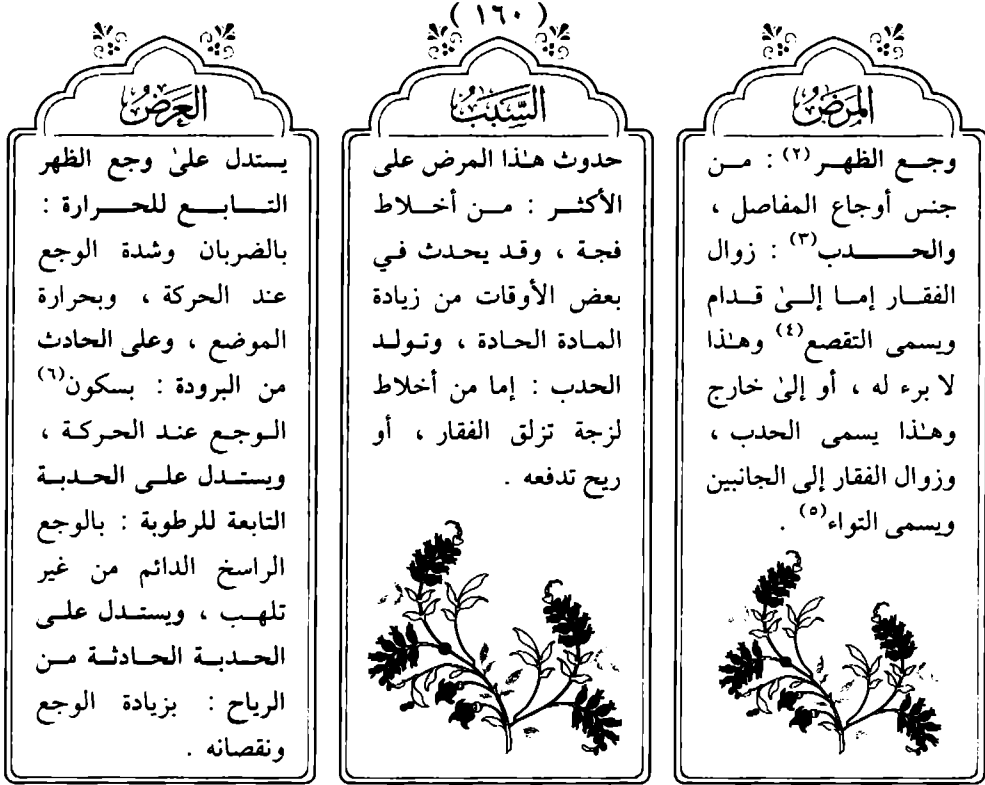 ( ١٦٠ )
المَرَضُ
وجع الظهر (٢) : من
جنس أوجاع المفاصل ،
والحدب(٣) : زوال
الفقار إما إلىٰ قدام
ويسمى التقصع(٤) وهـٰذا
لا برء له ، أو إلىٰ خارج
وهـٰذا يسمى الحدب ،
وزوال الفقار إلى الجانبين
ويسمى التواء(٥) .
السَّبَبُ
حدوث هـٰذا المرض على
الأكثر : من أخلاط
فجة ، وقد يحدث في
بعض الأوقات من زيادة
المادة الحادة ، وتولد
الحدب : إما من أخلاط
لزجة تزلق الفقار ، أو
ريح تدفعه .
العَرَضُ
يستدل علىٰ وجع الظهر
التابع للحرارة :
بالضربان وشدة الوجع
عند الحركة ، وبحرارة
الموضع ، وعلى الحادث
من البرودة : بسكون(٦)
الوجع عند الحركة ،
ويستدل على الحدبة
التابعة للرطوبة : بالوجع
الراسخ الدائم من غير
تلهب ، ويستدل على
الحدبة الحادثة من
الرياح : بزيادة الوجع
ونقصانه .